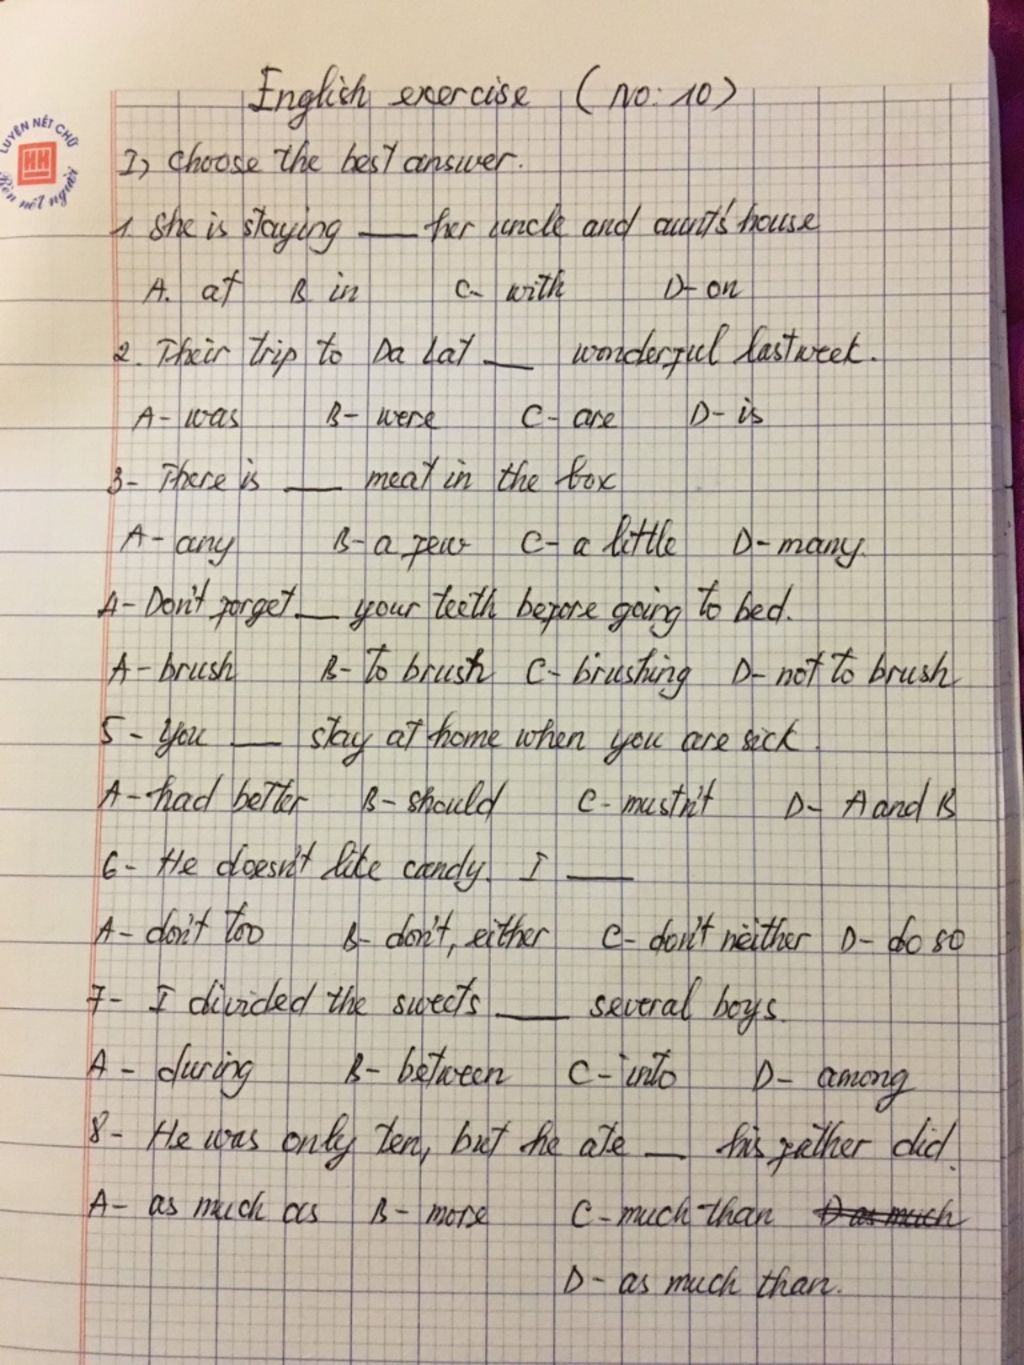 English exercise (No: 10)
LUYỆN NÉT CHỮ
HH
Rèn nết người
I, Choose the best answer.
1. She is staying ___ her uncle and aunt's house
A. at B in C- with D- on
2. Their trip to Da Lat ___ wonderful last week.
A- was B- were C- are D- is
3- There is ___ meat in the box
A- any B- a few C- a little D- many.
4- Don't forget ___ your teeth before going to bed.
A- brush B- to brush C- brushing D- not to brush
5- You ___ stay at home when you are sick.
A- had better B- should C- mustn't D- A and B
6- He doesn't like candy. I ___
A- don't too B- don't, either C- don't neither D- do so
7- I divided the sweets ___ several boys.
A- during B- between C- into D- among
8- He was only ten, but he ate ___ his father did.
A- as much as B- more C- much than D as much
D- as much than.